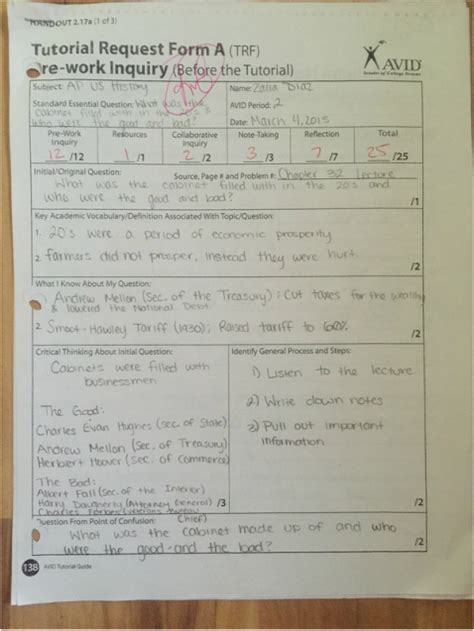 HANDOUT 2.17a (1 of 3)
Tutorial Request Form A (TRF)
Pre-work Inquiry (Before the Tutorial)
AVID
Subject: AP US History
Name: Zalia Diaz
Standard Essential Question: What was the
cabinet filled with in the 20's
who were the good and bad?
AVID Period: 2
Date: March 4, 2015
Pre-Work Inquiry 12 /12
Resources 1 /1
Collaborative Inquiry 2 /2
Note-Taking 3 /3
Reflection 7 /7
Total 25 /25
Initial/Original Question:
Source, Page # and Problem #: Chapter 32 Lecture
What was the cabinet filled with in the 20's and
who were the good and bad?
/1
Key Academic Vocabulary/Definition Associated With Topic/Question:
1. 20's were a period of economic prosperity
2. farmers did not prosper, instead they were hurt.
/2
What I Know About My Question:
1. Andrew Mellon (Sec. of the Treasury): Cut taxes for the wealthy
& lowered the National Debt.
2. Smoot-Hawley Tariff (1930): Raised tariff to 60%
/2
Critical Thinking About Initial Question:
Cabinets were filled with
businessmen
The Good:
Charles Evan Hughes (sec. of State)
Andrew Mellon (Sec. of Treasury)
Herbert Hoover (Sec. of Commerce)
The Bad:
Albert Fall (Sec. of the Interer)
Harry Daugherty (Attorney General)
Charles Forbes (Veterans Bureau
Chief)
/3
Identify General Process and Steps:
1) Listen to the lecture
2) Write down notes
3) Pull out important
information
/2
Question From Point of Confusion:
What was the cabinet made up of and who
were the good and the bad?
/2
138 AVID Tutorial Guide